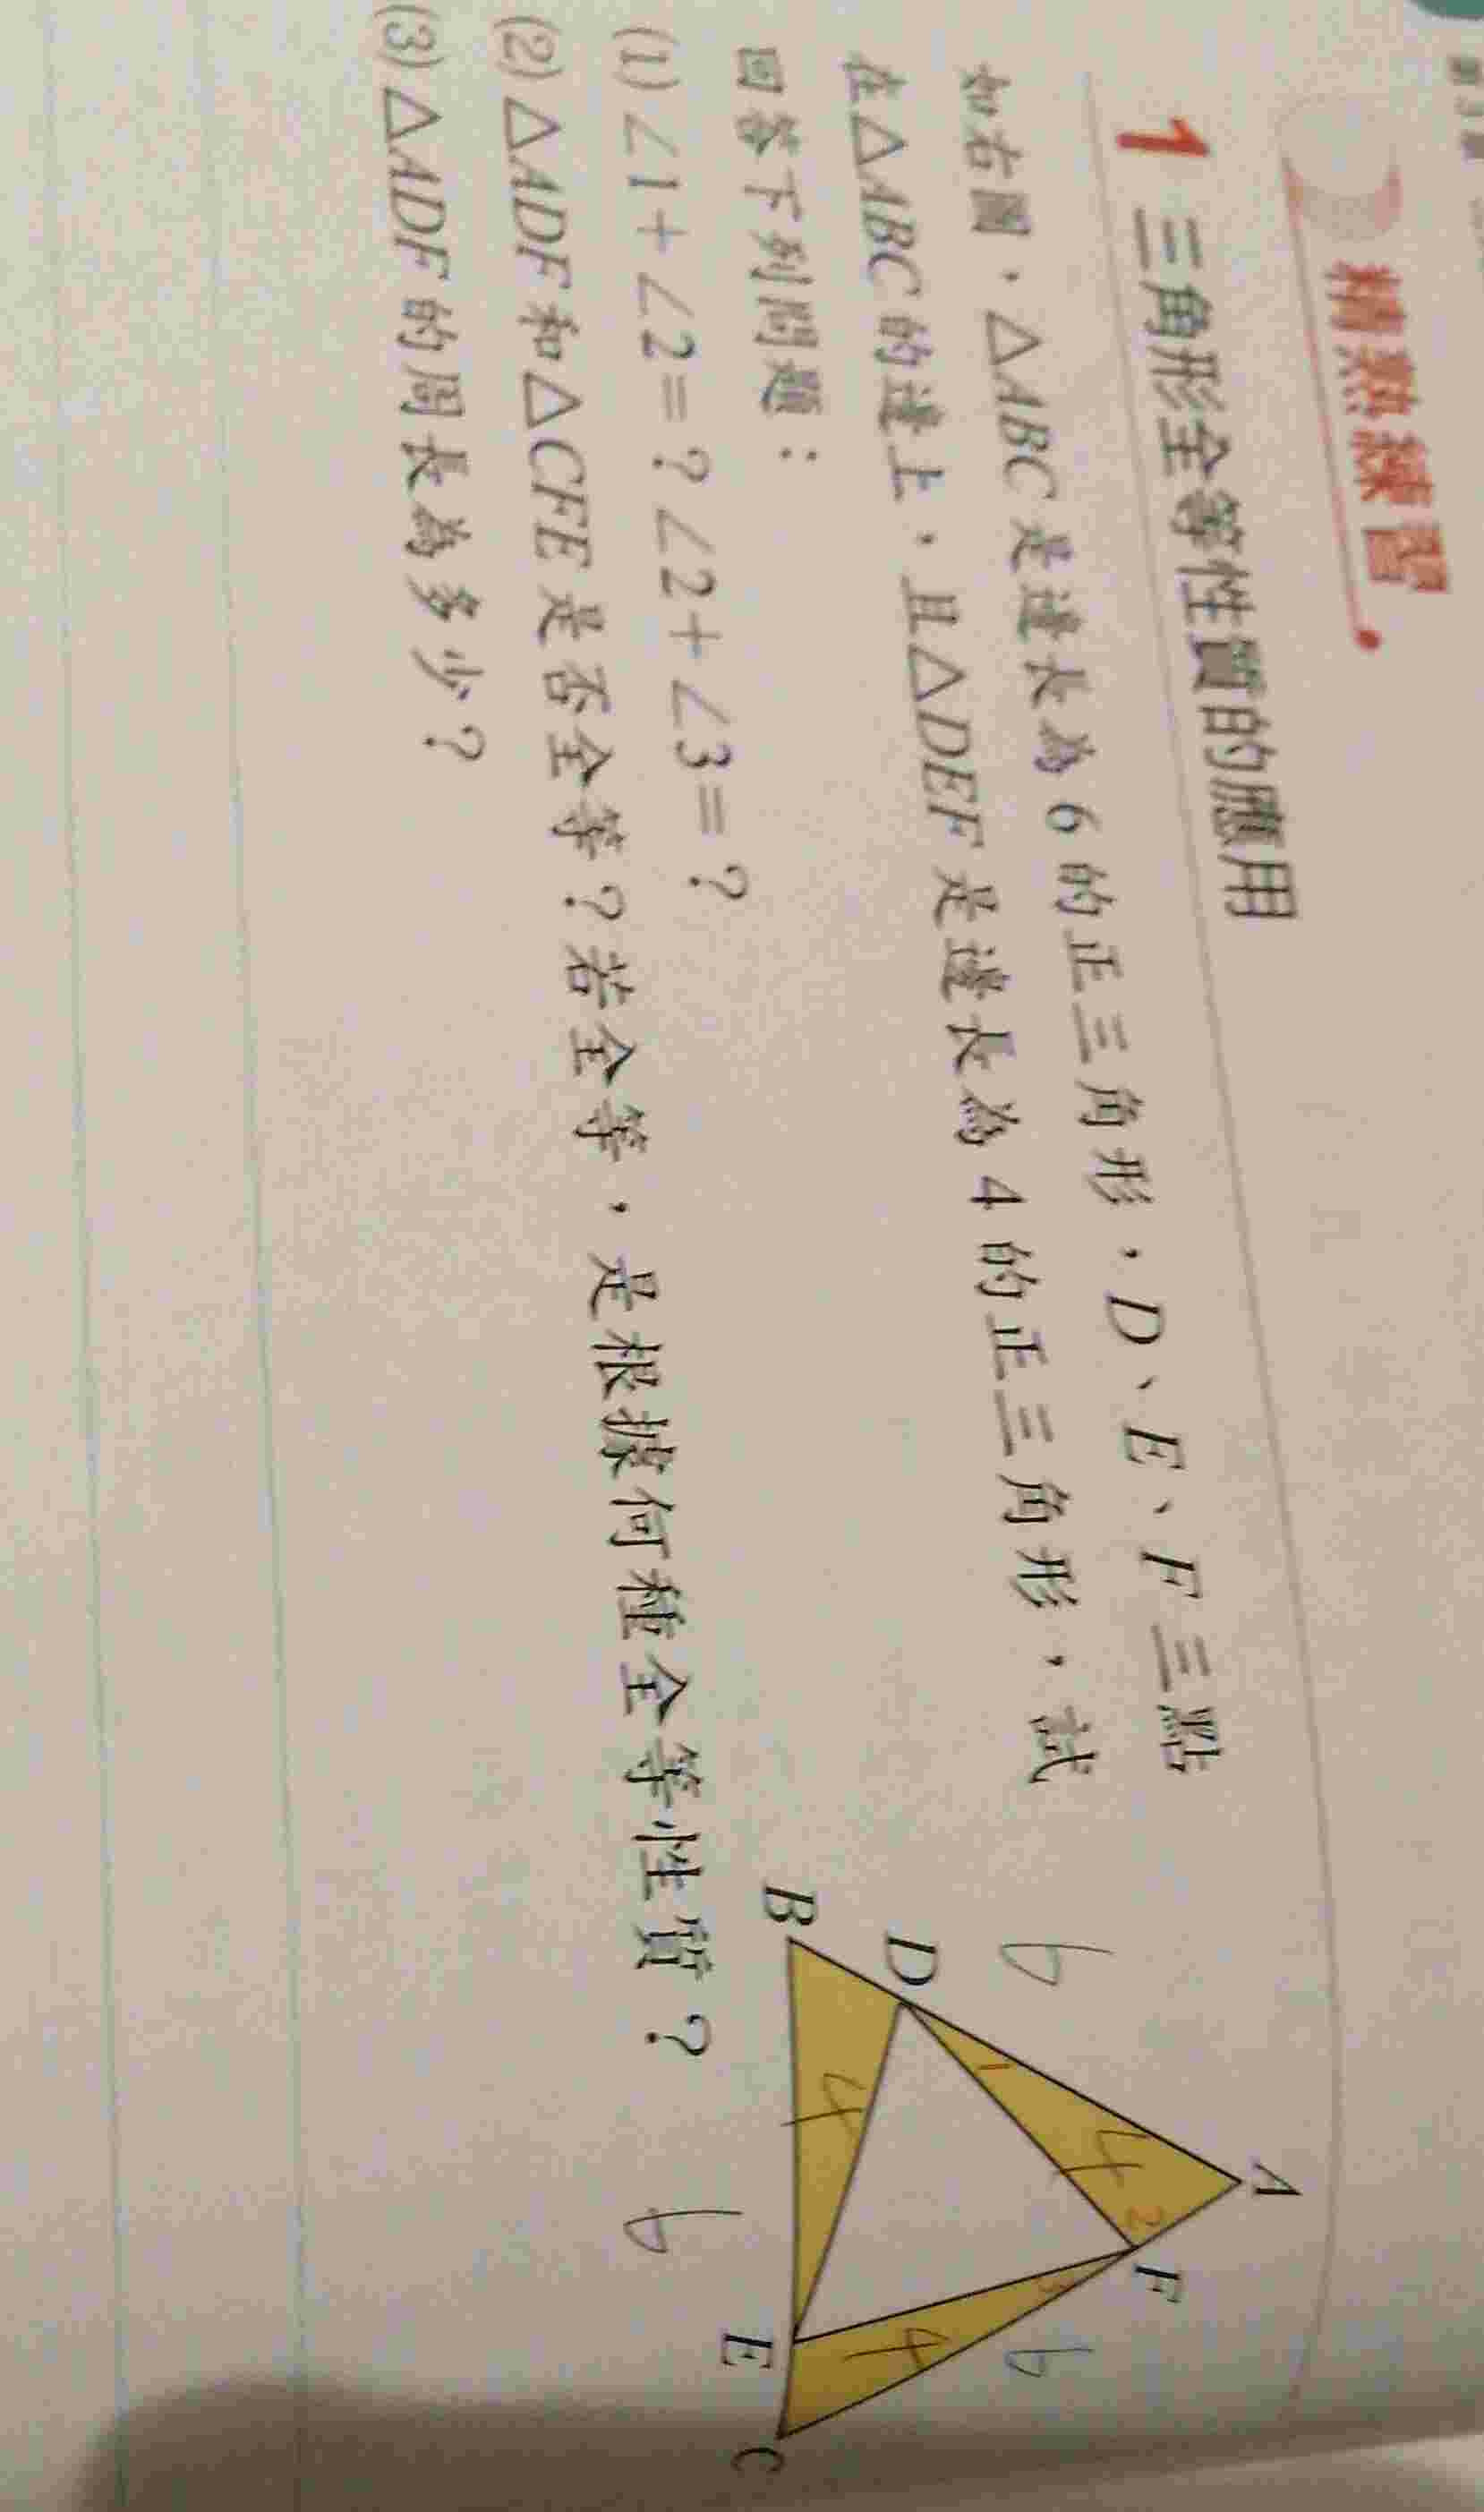 精熟練習
1 三角形全等性質的應用
如右圖，△ABC是邊長為6的正三角形，D、E、F三點
在△ABC的邊上，且△DEF是邊長為4的正三角形，試
回答下列問題：
(1) ∠1+∠2=？∠2+∠3=？
(2) △ADF和△CFE是否全等？若全等，是根據何種全等性質？
(3) △ADF的周長為多少？
A
6
1
4
2
F
D
3
6
4
4
B
E
C
6